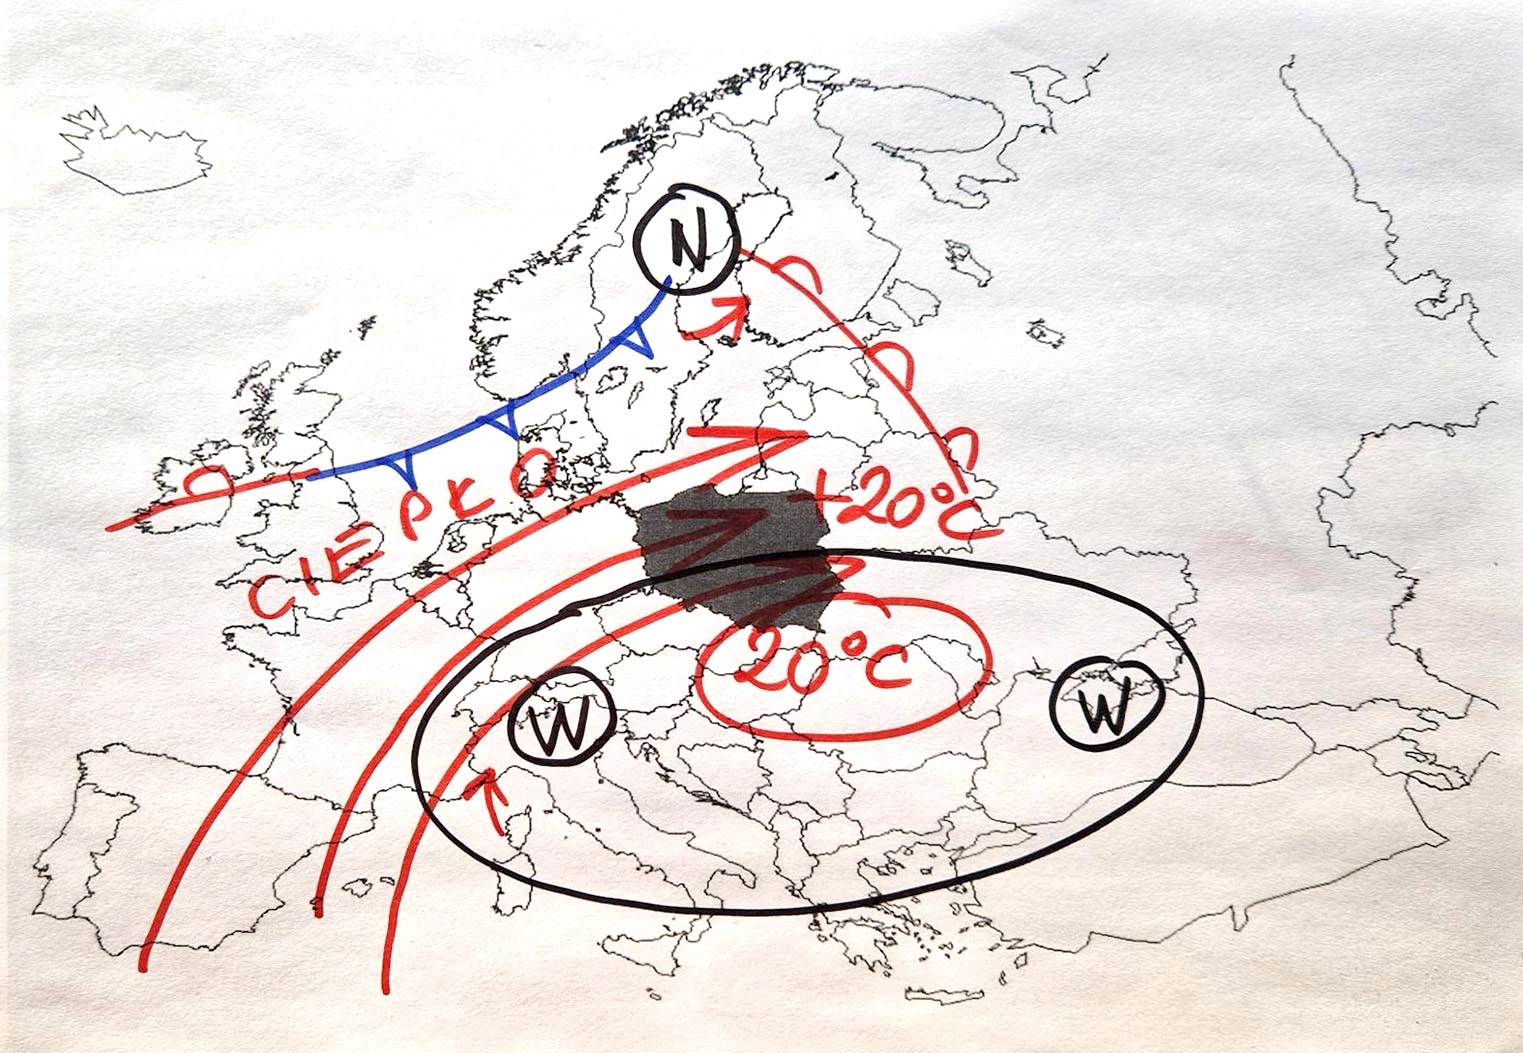 N
CIEPŁO
+20°C
20°C
W
W